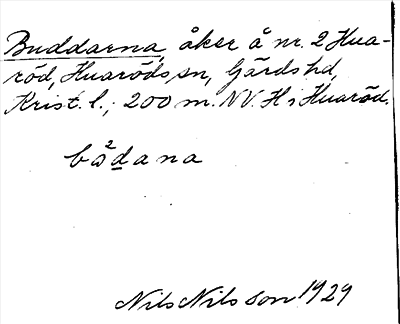 Buddarna, åker å nr. 2 Hua-
röd, Huaröds sn, Gärds hd,
Krist. l.; 200 m. NV. H i Huaröd.
bödana
Nils Nilsson 1929